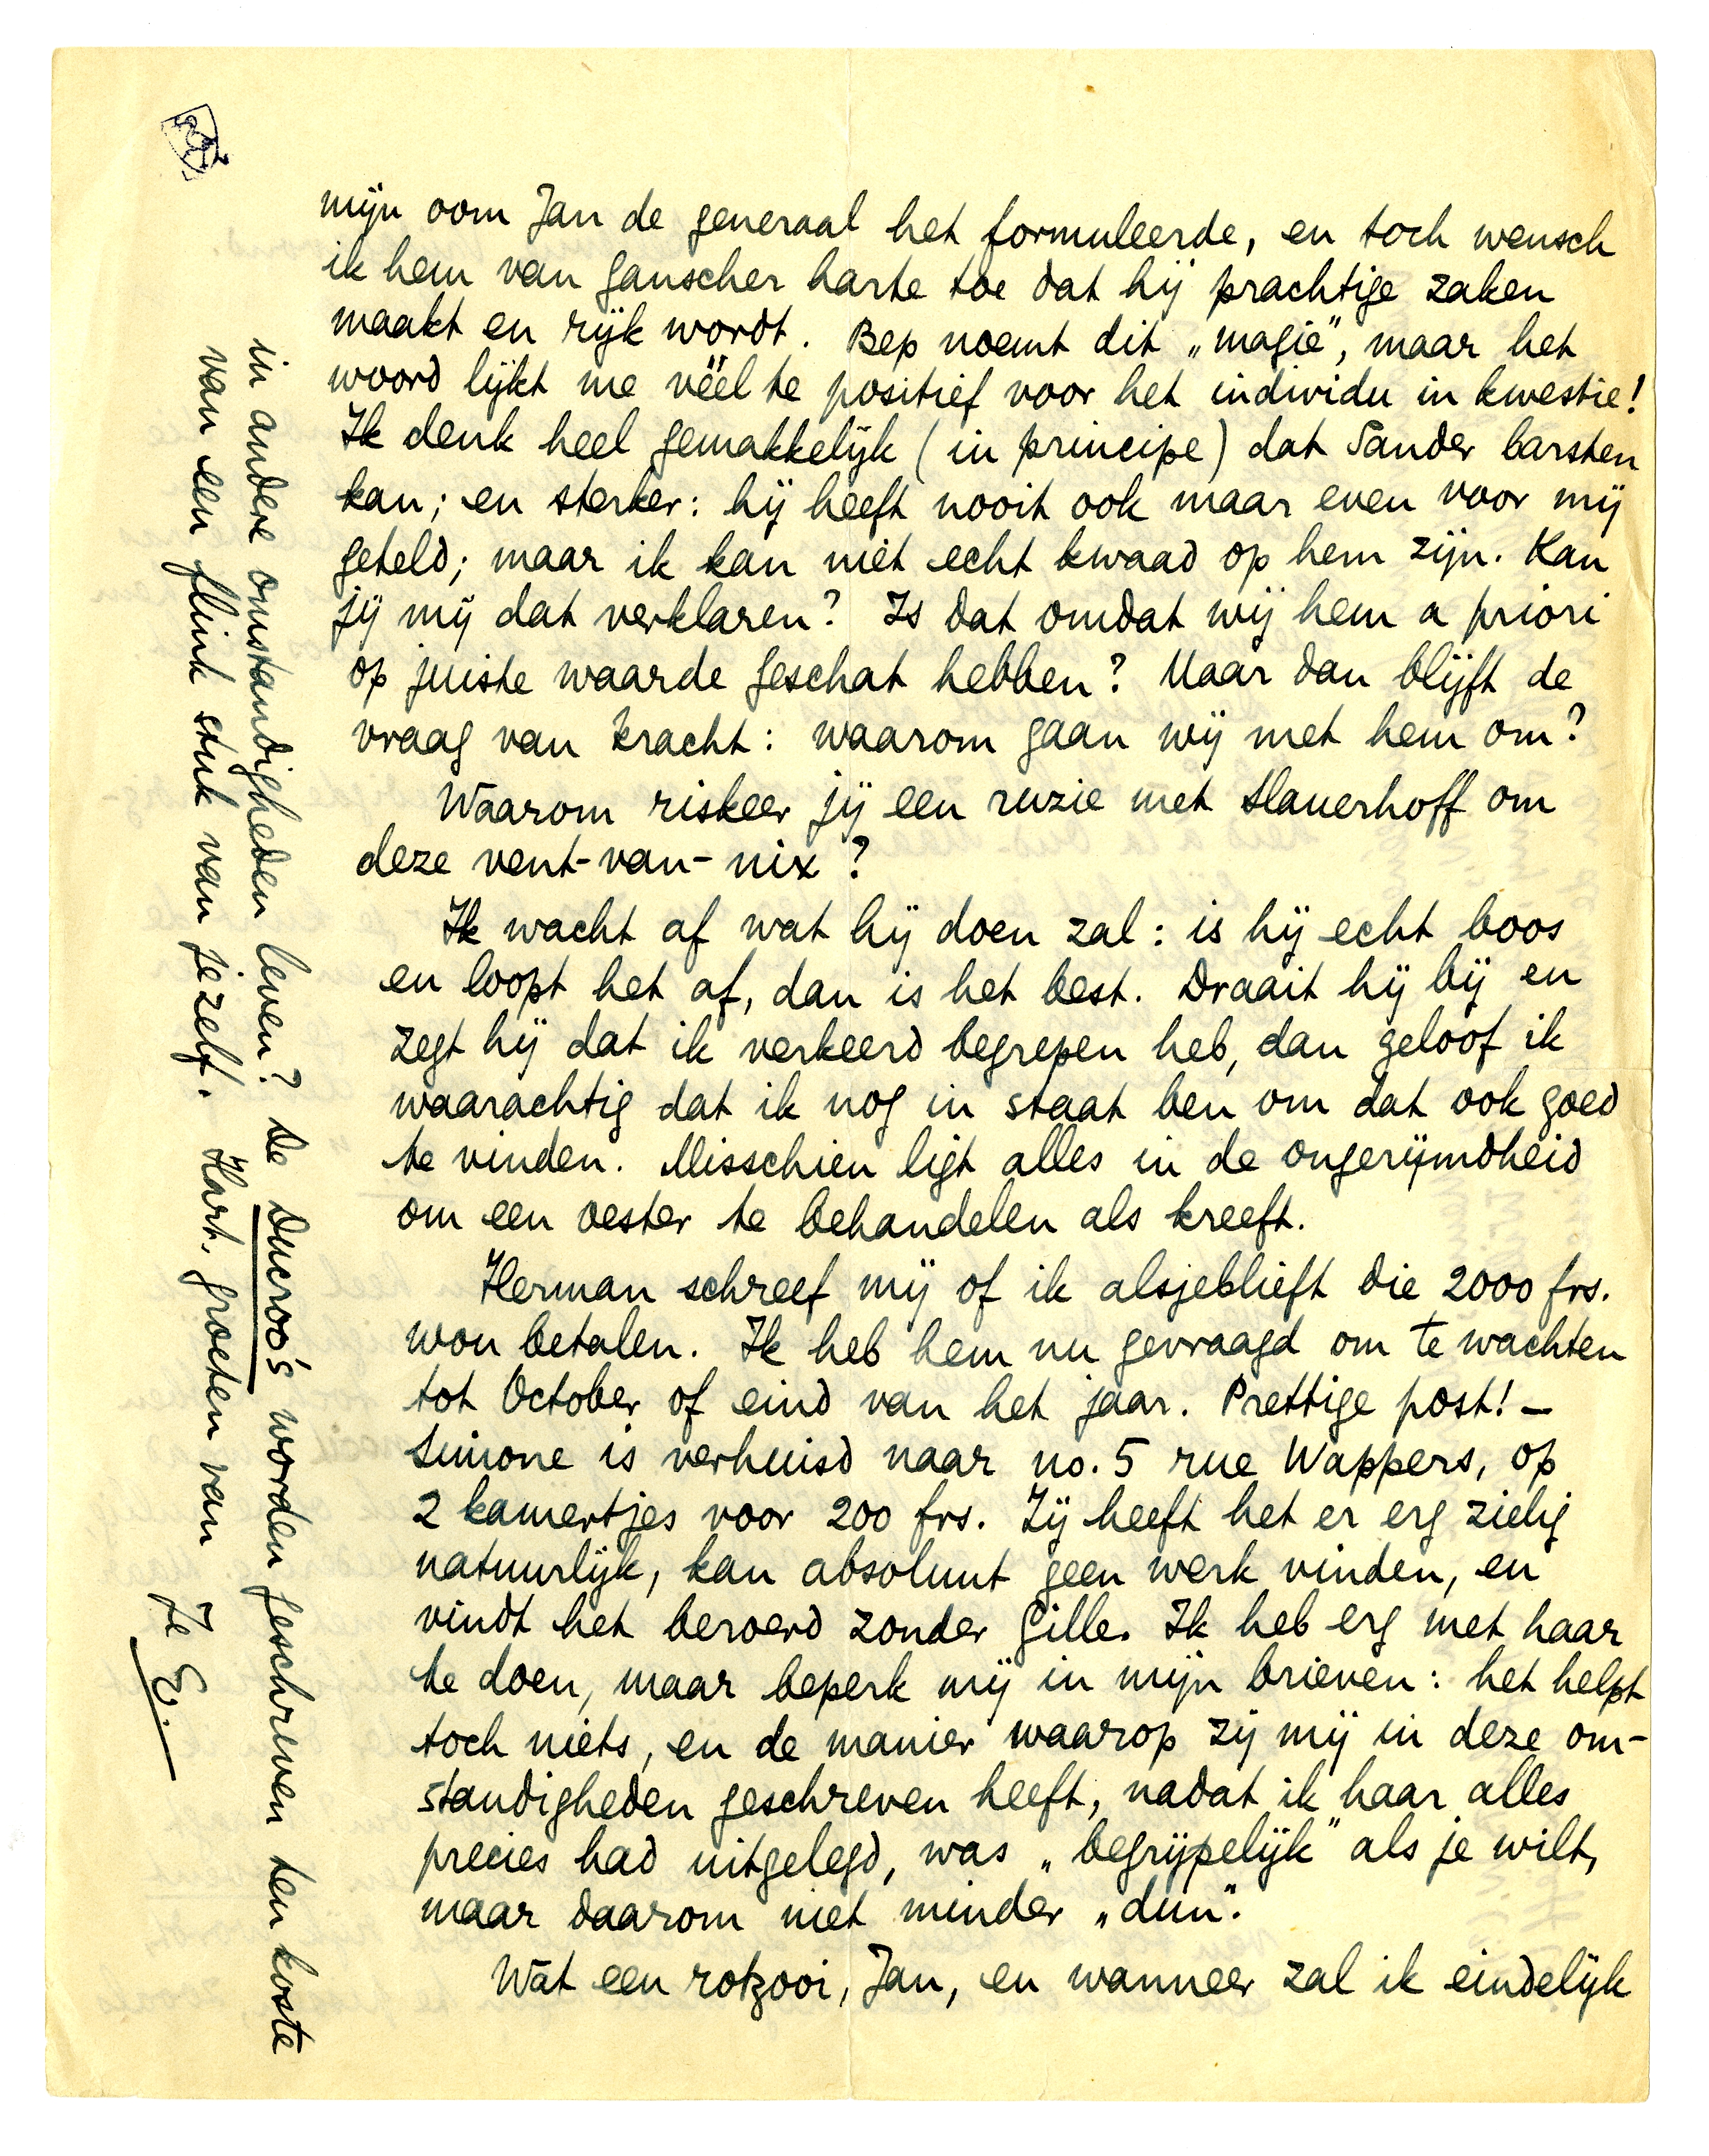 mijn oom Jan de generaal het formuleerde, en toch wensch
ik hem van ganscher harte toe dat hij prachtige zaken
maakt en rijk wordt. Bep noemt dit „magie", maar het
woord lijkt me véél te positief voor het individu in kwestie!
Ik denk heel gemakkelijk (in principe) dat Sander barsten
kan; en sterker: hij heeft nooit ook maar even voor mij
geteld; maar ik kan niet echt kwaad op hem zijn. Kan
jij mij dat verklaren? Is dat omdat wij hem a priori
op juiste waarde geschat hebben? Maar dan blijft de
vraag van kracht: waarom gaan wij met hem om?
Waarom riskeer jij een ruzie met Slauerhoff om
deze vent-van-nix?
Ik wacht af wat hij doen zal: is hij echt boos
en loopt het af, dan is het best. Draait hij bij en
zegt hij dat ik verkeerd begrepen heb, dan geloof ik
waarachtig dat ik nog in staat ben om dat ook goed
te vinden. Misschien ligt alles in de ongerijmdheid
om een oester te behandelen als kreeft.
Herman schreef mij of ik alsjeblieft die 2000 frs.
wou betalen. Ik heb hem nu gevraagd om te wachten
tot October of eind van het jaar. Prettige post! —
Simone is verhuisd naar no. 5 rue Wappers, op
2 kamertjes voor 200 frs. Zij heeft het er erg zielig
natuurlijk, kan absoluut geen werk vinden, en
vindt het beroerd zonder Gille. Ik heb erg met haar
te doen, maar beperk mij in mijn brieven: het helpt
toch niets, en de manier waarop zij mij in deze om-
standigheden geschreven heeft, nadat ik haar alles
precies had uitgelegd, was „begrijpelijk" als je wilt,
maar daarom niet minder „dun".
Wat een rotzooi, Jan, en wanneer zal ik eindelijk
in andere omstandigheden leven? De Ducroo's worden geschreven ten koste
van een flink stuk van jezelf. Hart. groeten van
Je E.